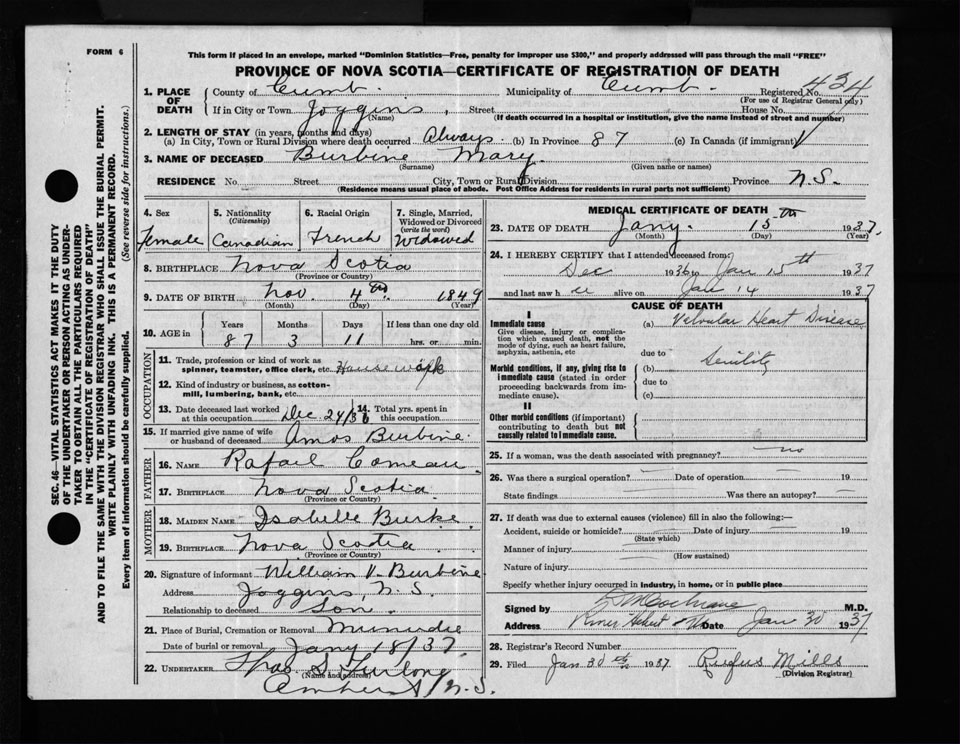 FORM 6
This form if placed in an envelope, marked "Dominion Statistics—Free, penalty for improper use $300," and properly addressed will pass through the mail "FREE"
PROVINCE OF NOVA SCOTIA—CERTIFICATE OF REGISTRATION OF DEATH
434
1. PLACE OF DEATH County of Cumb. Municipality of Cumb. Registered No.
(For use of Registrar General only)
If in City or Town Joggins, Street House No.
(Name) (If death occurred in a hospital or institution, give the name instead of street and number)
2. LENGTH OF STAY (in years, months and days)
(a) In City, Town or Rural Division where death occurred Always. (b) In Province 87 (c) In Canada (if immigrant)
3. NAME OF DECEASED Burbine Mary.
(Surname) (Given name or names)
RESIDENCE No. Street City, Town or Rural Division Province N.S.
(Residence means usual place of abode. Post Office Address for residents in rural parts not sufficient)
SEC. 46—VITAL STATISTICS ACT MAKES IT THE DUTY
OF THE UNDERTAKER OR PERSON ACTING AS UNDER-
TAKER TO OBTAIN ALL THE PARTICULARS REQUIRED
IN THE "CERTIFICATE OF REGISTRATION OF DEATH"
AND TO FILE THE SAME WITH THE DIVISION REGISTRAR WHO SHALL ISSUE THE BURIAL PERMIT.
WRITE PLAINLY WITH UNFADING INK. THIS IS A PERMANENT RECORD.
Every item of information should be carefully supplied. (See reverse side for instructions.)
4. Sex 5. Nationality (Citizenship) 6. Racial Origin 7. Single, Married, Widowed or Divorced (write the word)
Female Canadian French Widowed
8. BIRTHPLACE Nova Scotia
(Province or Country)
9. DATE OF BIRTH Nov. 4th. 1849
(Month) (Day) (Year)
10. AGE in Years Months Days If less than one day old
87 3 11 hrs. or min.
OCCUPATION
11. Trade, profession or kind of work as spinner, teamster, office clerk, etc. House work
12. Kind of industry or business, as cotton-mill, lumbering, bank, etc.
13. Date deceased last worked at this occupation Dec 24/36 14. Total yrs. spent in this occupation
15. If married give name of wife or husband of deceased Amos Burbine.
FATHER
16. NAME Rafael Comeau.
17. BIRTHPLACE Nova Scotia.
(Province or Country)
MOTHER
18. MAIDEN NAME Isabelle Burke.
19. BIRTHPLACE Nova Scotia
(Province or Country)
20. Signature of informant William V. Burbine.
Address Joggins, N.S.
Relationship to deceased Son.
21. Place of Burial, Cremation or Removal Minudie
Date of burial or removal Jany 18/37.
22. UNDERTAKER Thos. S. Furlong
(Name and address)
Amherst, N.S.
MEDICAL CERTIFICATE OF DEATH
23. DATE OF DEATH Jany. 15th 1937.
(Month) (Day) (Year)
24. I HEREBY CERTIFY that I attended deceased from
Dec 1936 to Jan 15th 1937
and last saw h er alive on Jan 14 1937
CAUSE OF DEATH
I
Immediate cause
Give disease, injury or complication which caused death, not the mode of dying, such as heart failure, asphyxia, asthenia, etc
(a) Valvular Heart Disease
due to
Morbid conditions, if any, giving rise to immediate cause (stated in order proceeding backwards from immediate cause).
(b) Senility
due to
(c)
II
Other morbid conditions (if important) contributing to death but not causally related to immediate cause.
25. If a woman, was the death associated with pregnancy? no
26. Was there a surgical operation? Date of operation 19
State findings Was there an autopsy?
27. If death was due to external causes (violence) fill in also the following:—
Accident, suicide or homicide? Date of injury 19
(State which)
Manner of injury
(How sustained)
Nature of injury
Specify whether injury occurred in industry, in home, or in public place
Signed by Cochrane M.D.
Address River Hebert NS Date Jan 30 1937
28. Registrar's Record Number
29. Filed Jan 30th 1937 Rufus Mills
(Division Registrar)